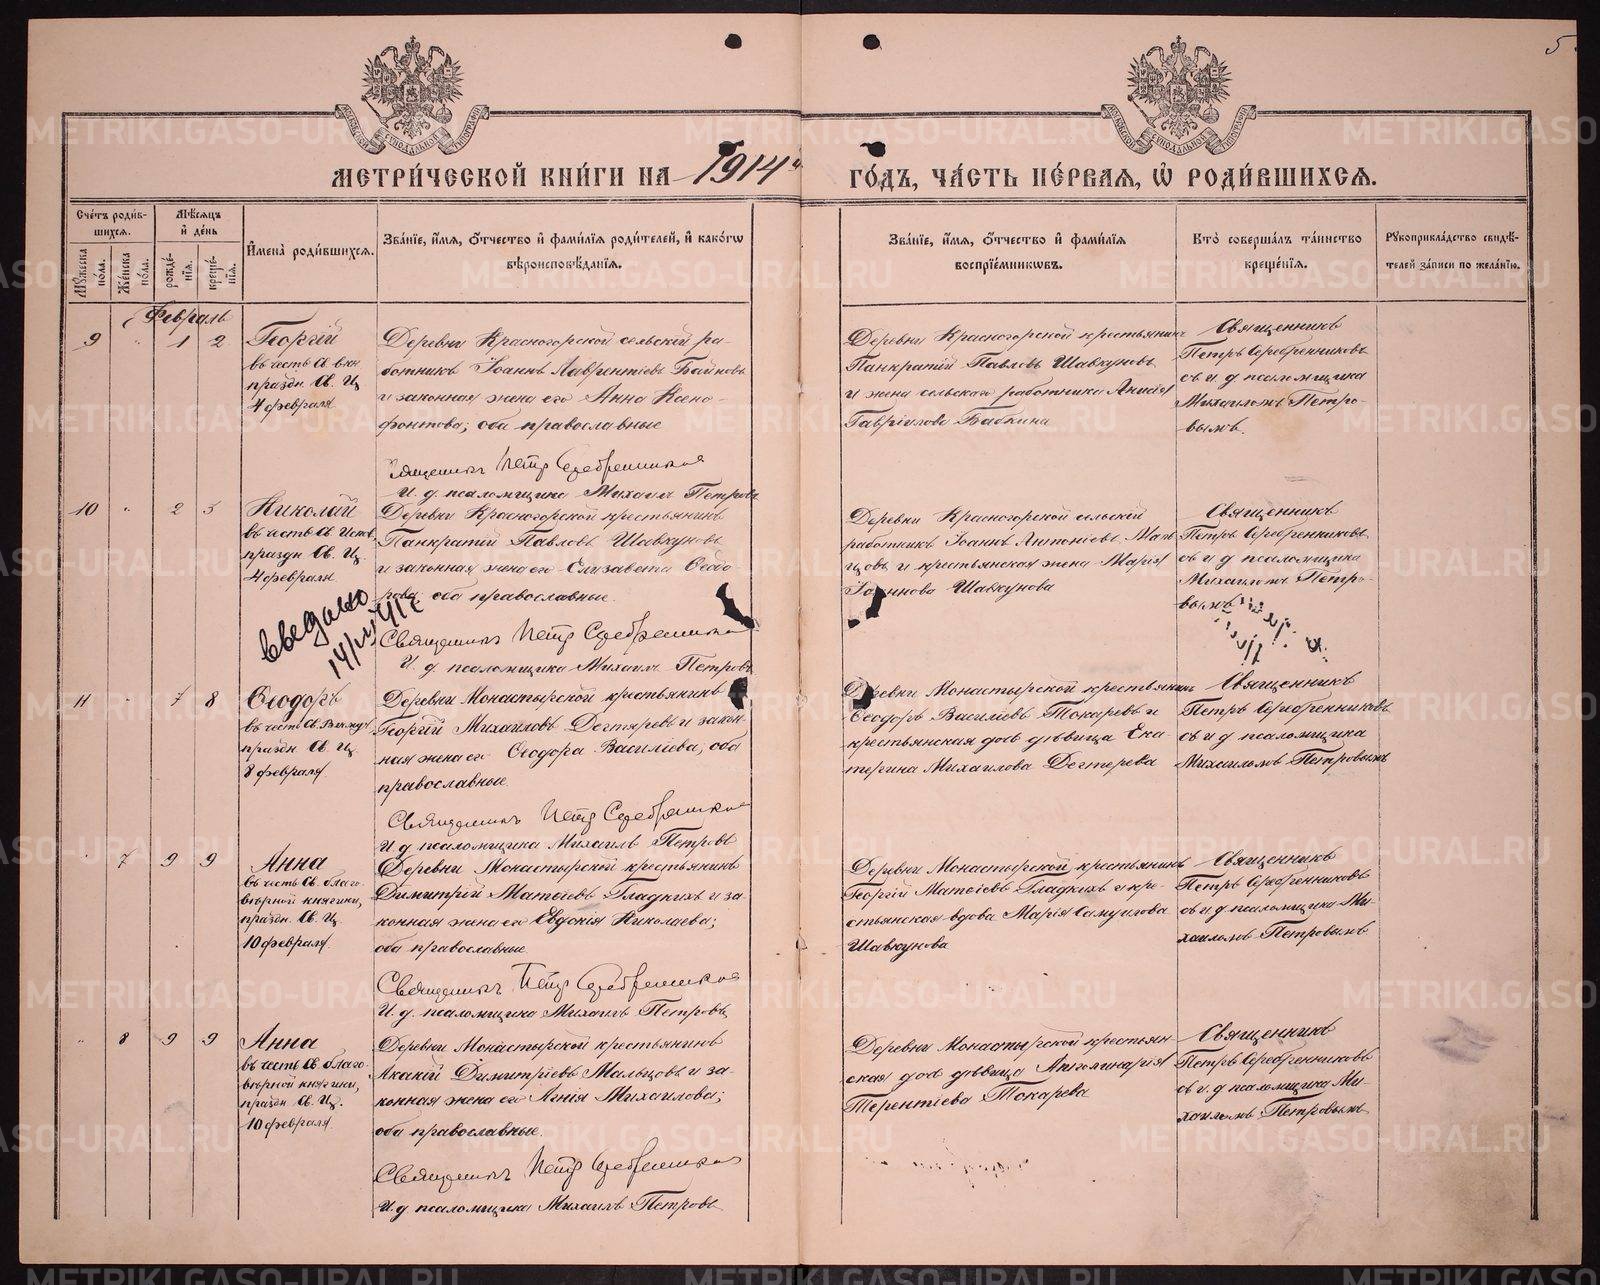 5
МЕТРИ́ЧЕСКОЙ КНИ́ГИ НА 1914 й ГО́ДЪ, ЧА́СТЬ ПЕ́РВАЯ, Ѡ РОДИ́ВШИХСЯ.
Сче́тъ роди́вшихся.
Му́жеска по́ла.
Же́нска по́ла.
Мѣ́сяцъ и҆ де́нь
рожде́нїя.
креще́нїя.
И҆мена̀ роди́вшихся.
Зва́нїе, и҆́мя, ѻ҆́тчество и҆ фами́лїя роди́телей, и҆ како́гѡ
вѣроисповѣ́данїя.
Зва́нїе, и҆́мя, ѻ҆́тчество и҆ фами́лїя
воспрїе́мниковъ.
Кто̀ соверша́лъ та́инство
креще́нїя.
Рꙋкоприкла́дство свидѣ́-
телей за́писи по жела́нїю.
Февраль
9 " 1 2
Георгій
въ честь Св. Вкм
праздн. Св. Ц.
4 февраля
Деревни Красногорской сельскій ра-
ботникъ Іоаннъ Лаврентіевъ Байновъ
и законная жена его Анна Ксено-
фонтова; оба православные
Священникъ Петръ Серебренниковъ
И. д. псаломщика Михаилъ Петровъ
Деревни Красногорской крестьянинъ
Панкратій Павловъ Шавкуновъ
и жена сельскаго работника Анисія
Гавріилова Бабкина
Священникъ
Петръ Серебренниковъ
съ и. д. псаломщика
Михаиломъ Петро-
вымъ.
10 " 2 3
Николай
въ честь Св. Испов.
праздн. Св. Ц.
4 февраля
введено
Деревни Красногорской крестьянинъ
Панкратій Павловъ Шавкуновъ
и законная жена его Елизавета Ѳеодо-
рова, оба православные.
Священникъ Петръ Серебренниковъ
И. д. псаломщика Михаилъ Петровъ
Деревни Красногорской сельскій
работникъ Іоаннъ Антоніевъ Маль-
цовъ и крестьянская жена Марія
Іоаннова Шавкунова
Священникъ
Петръ Серебренниковъ
съ и д псаломщика
Михаиломъ Петро-
вымъ
11 " 7 8
Ѳеодоръ
въ честь Св. Вкмуч
праздн. Св. Ц.
8 февраля
Деревни Монастырской крестьянинъ
Георгій Михаиловъ Дегтяревъ и закон-
ная жена его Ѳеодора Василіева, оба
православные.
Священникъ Петръ Серебренниковъ
И д псаломщика Михаилъ Петровъ
Деревни Монастырской крестьянинъ
Ѳеодоръ Василіевъ Токаревъ и
крестьянская дочь дѣвица Ека-
терина Михаилова Дегтерева
Священникъ
Петръ Серебренниковъ
съ и д псаломщика
Михаиломъ Петровымъ
" 7 9 9
Анна
въ честь Св. благо-
вѣрной княгини,
праздн. Св. Ц.
10 февраля
Деревни Монастырскій крестьянинъ
Димитрій Матѳіевъ Гладкихъ и за-
конная жена его Евдокія Николаева;
оба православные
Священникъ Петръ Серебренниковъ
И. д. псаломщика Михаилъ Петровъ
Деревни Монастырской крестьянинъ
Георгій Матѳіевъ Гладкихъ и кре-
стьянская вдова Марія Самуилова
Шавкунова
Священникъ
Петръ Серебренниковъ
съ и. д. псаломщика Ми-
хаиломъ Петровымъ
" 8 9 9
Анна
въ честь Св. благо-
вѣрной княгини,
праздн. Св. Ц.
10 февраля
Деревни Монастырской крестьянинъ
Акакій Димитріевъ Мальцовъ и за-
конная жена его Агнія Михаилова;
оба православные.
Священникъ Петръ Серебренниковъ
И. д псаломщика Михаилъ Петровъ
Деревни Монастырской крестьян-
ская дочь дѣвица Аполлинарія
Терентіева Токарева
Священникъ
Петръ Серебренниковъ
съ и. д псаломщика Ми-
хаиломъ Петровымъ
METRIKI.GASO-URAL.RU